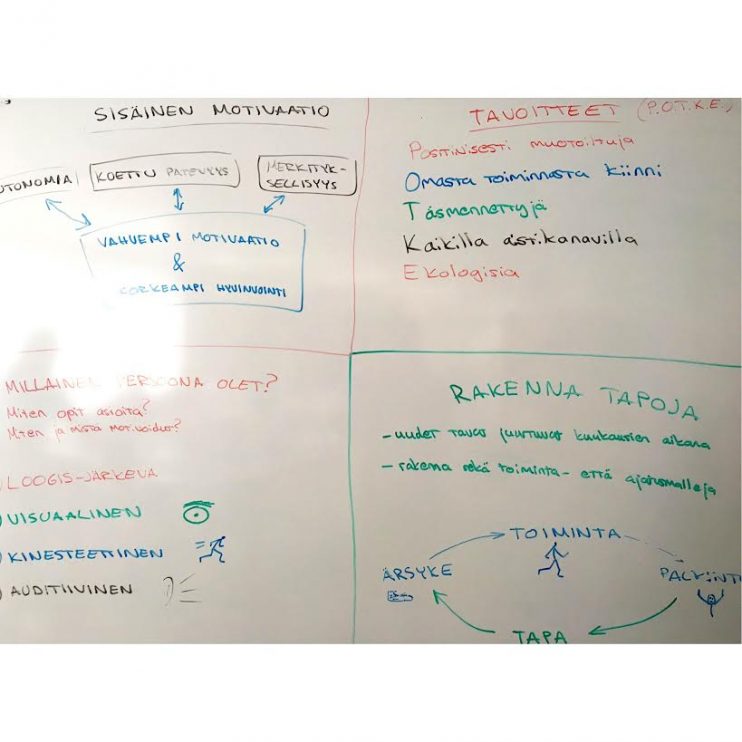 SISÄINEN MOTIVAATIO
UTONOMIA
KOETTU PÄTEVYYS
MERKITYK-
SELLISYYS
VAHVEMPI MOTIVAATIO
&
KORKEAMPI HYVINVOINTI
TAVOITTEET (P.O.T.K.E.)
Positiivisesti muotoiltuja
Omasta toiminnasta kiinni
Täsmennettyjä
Kaikilla aistikanavilla
Ekologisia
MILLAINEN PERSOONA OLET?
Miten opit asioita?
Miten ja mistä motivoidut?
LOOGIS-JÄRKEVÄ
VISUAALINEN
KINESTEETTINEN
AUDITIIVINEN
RAKENNA TAPOJA
- uudet tavat juurtuvat kuukausien aikana
- rakenna sekä toiminta- että ajatusmalleja
TOIMINTA
ÄRSYKE
PALKINT
TAPA